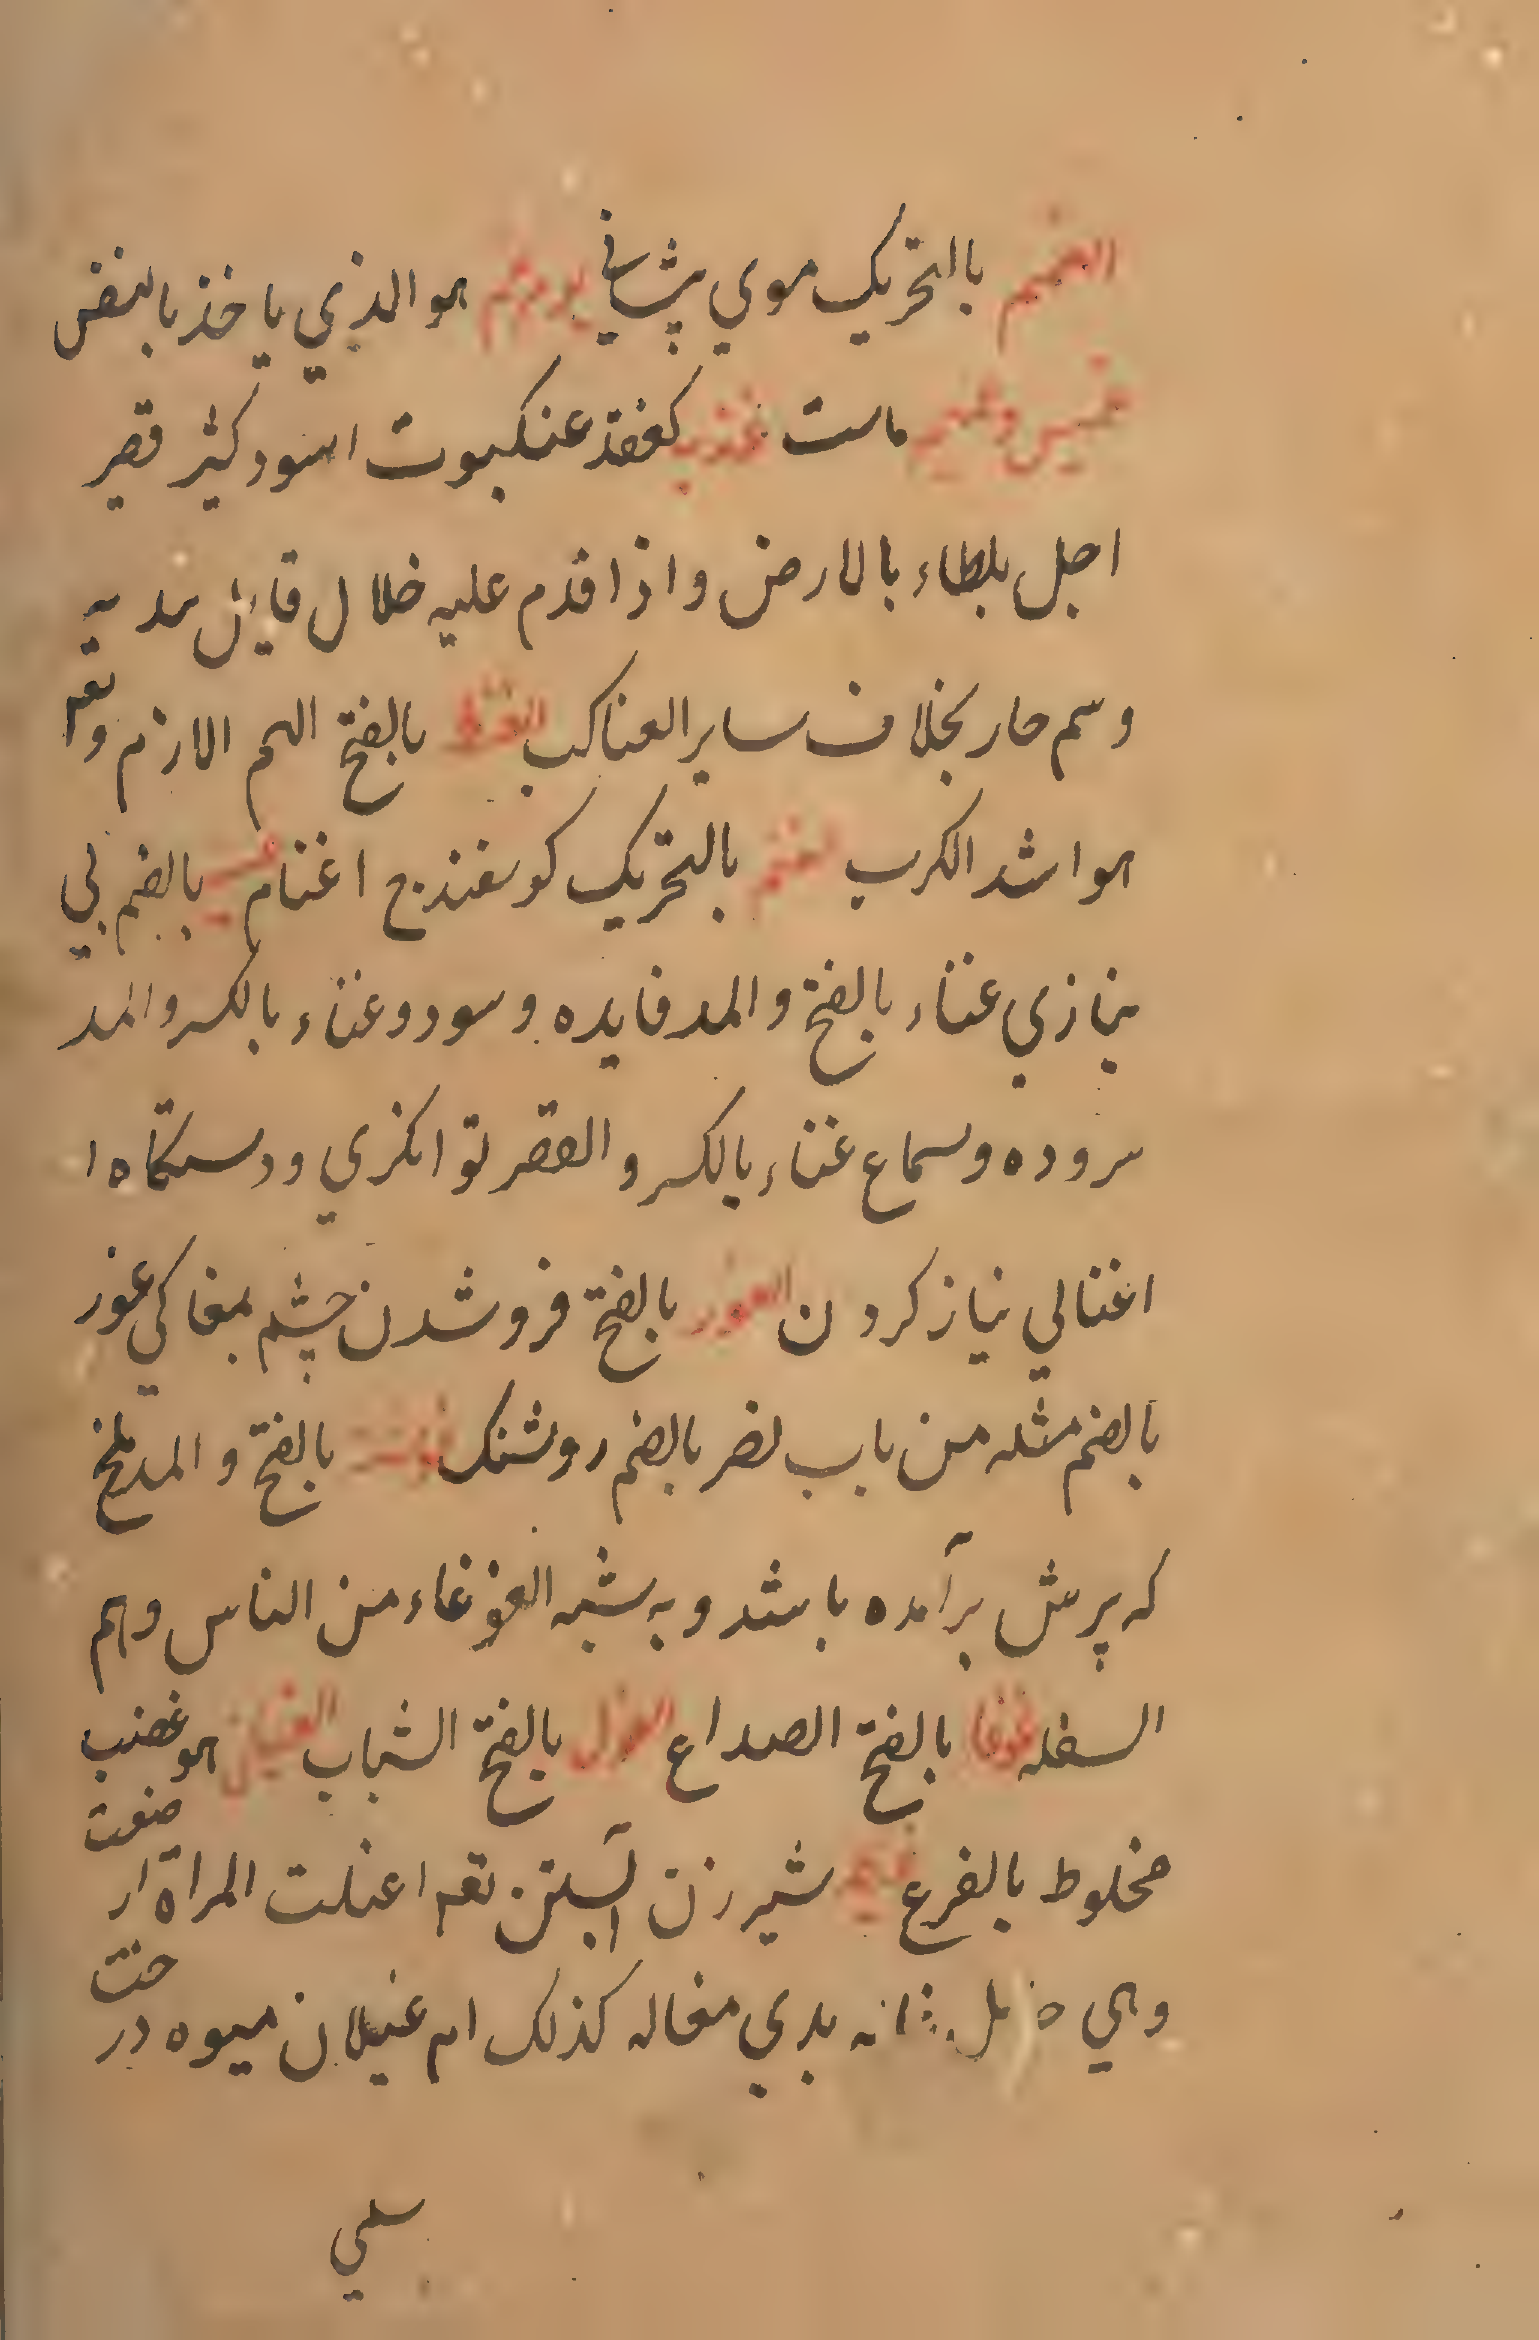 الغمم باالتحریک موي پیشاني یوم غم هو الذي یاخذ بالنفس
غمیس وغمیم ماست کقنفذ عنکبوت اسود کثیر قصیر
اجل بلطاء بالارض واذا قدم علیه خلال قایل
وسم حار بخلاف سایر العناکب الغنظ بالفتح الهم الازم ویقم
هو اشد الکرب الغنم بالتحریک کوسفندج اغنام بالضم لي
بنیازي غناء بالفتح والمد فایده وسود وغناء بالکسر والمد
سروده وسماع غناء بالکسر والقصر توانکري ودستکاه ا
اغنالي نیاز کردن الغور بالفتح فروشدن چشم بمغاکي غور
بالضم مثله من باب نصر بالضم روشنک بالفتح والمد ملخ
که پرش برآمده باشد وبه شبه الغوغاء من الناس وهم
السفله غوغا بالفتح الصداع الغول بالفتح الشباب هو غضب
مخلوط بالفرع شیر زن آبستن یقم اغیلت المراة ار
ضعت
وهي بدي مغاله کذلک ام غیلان میوه در
خت
سلي